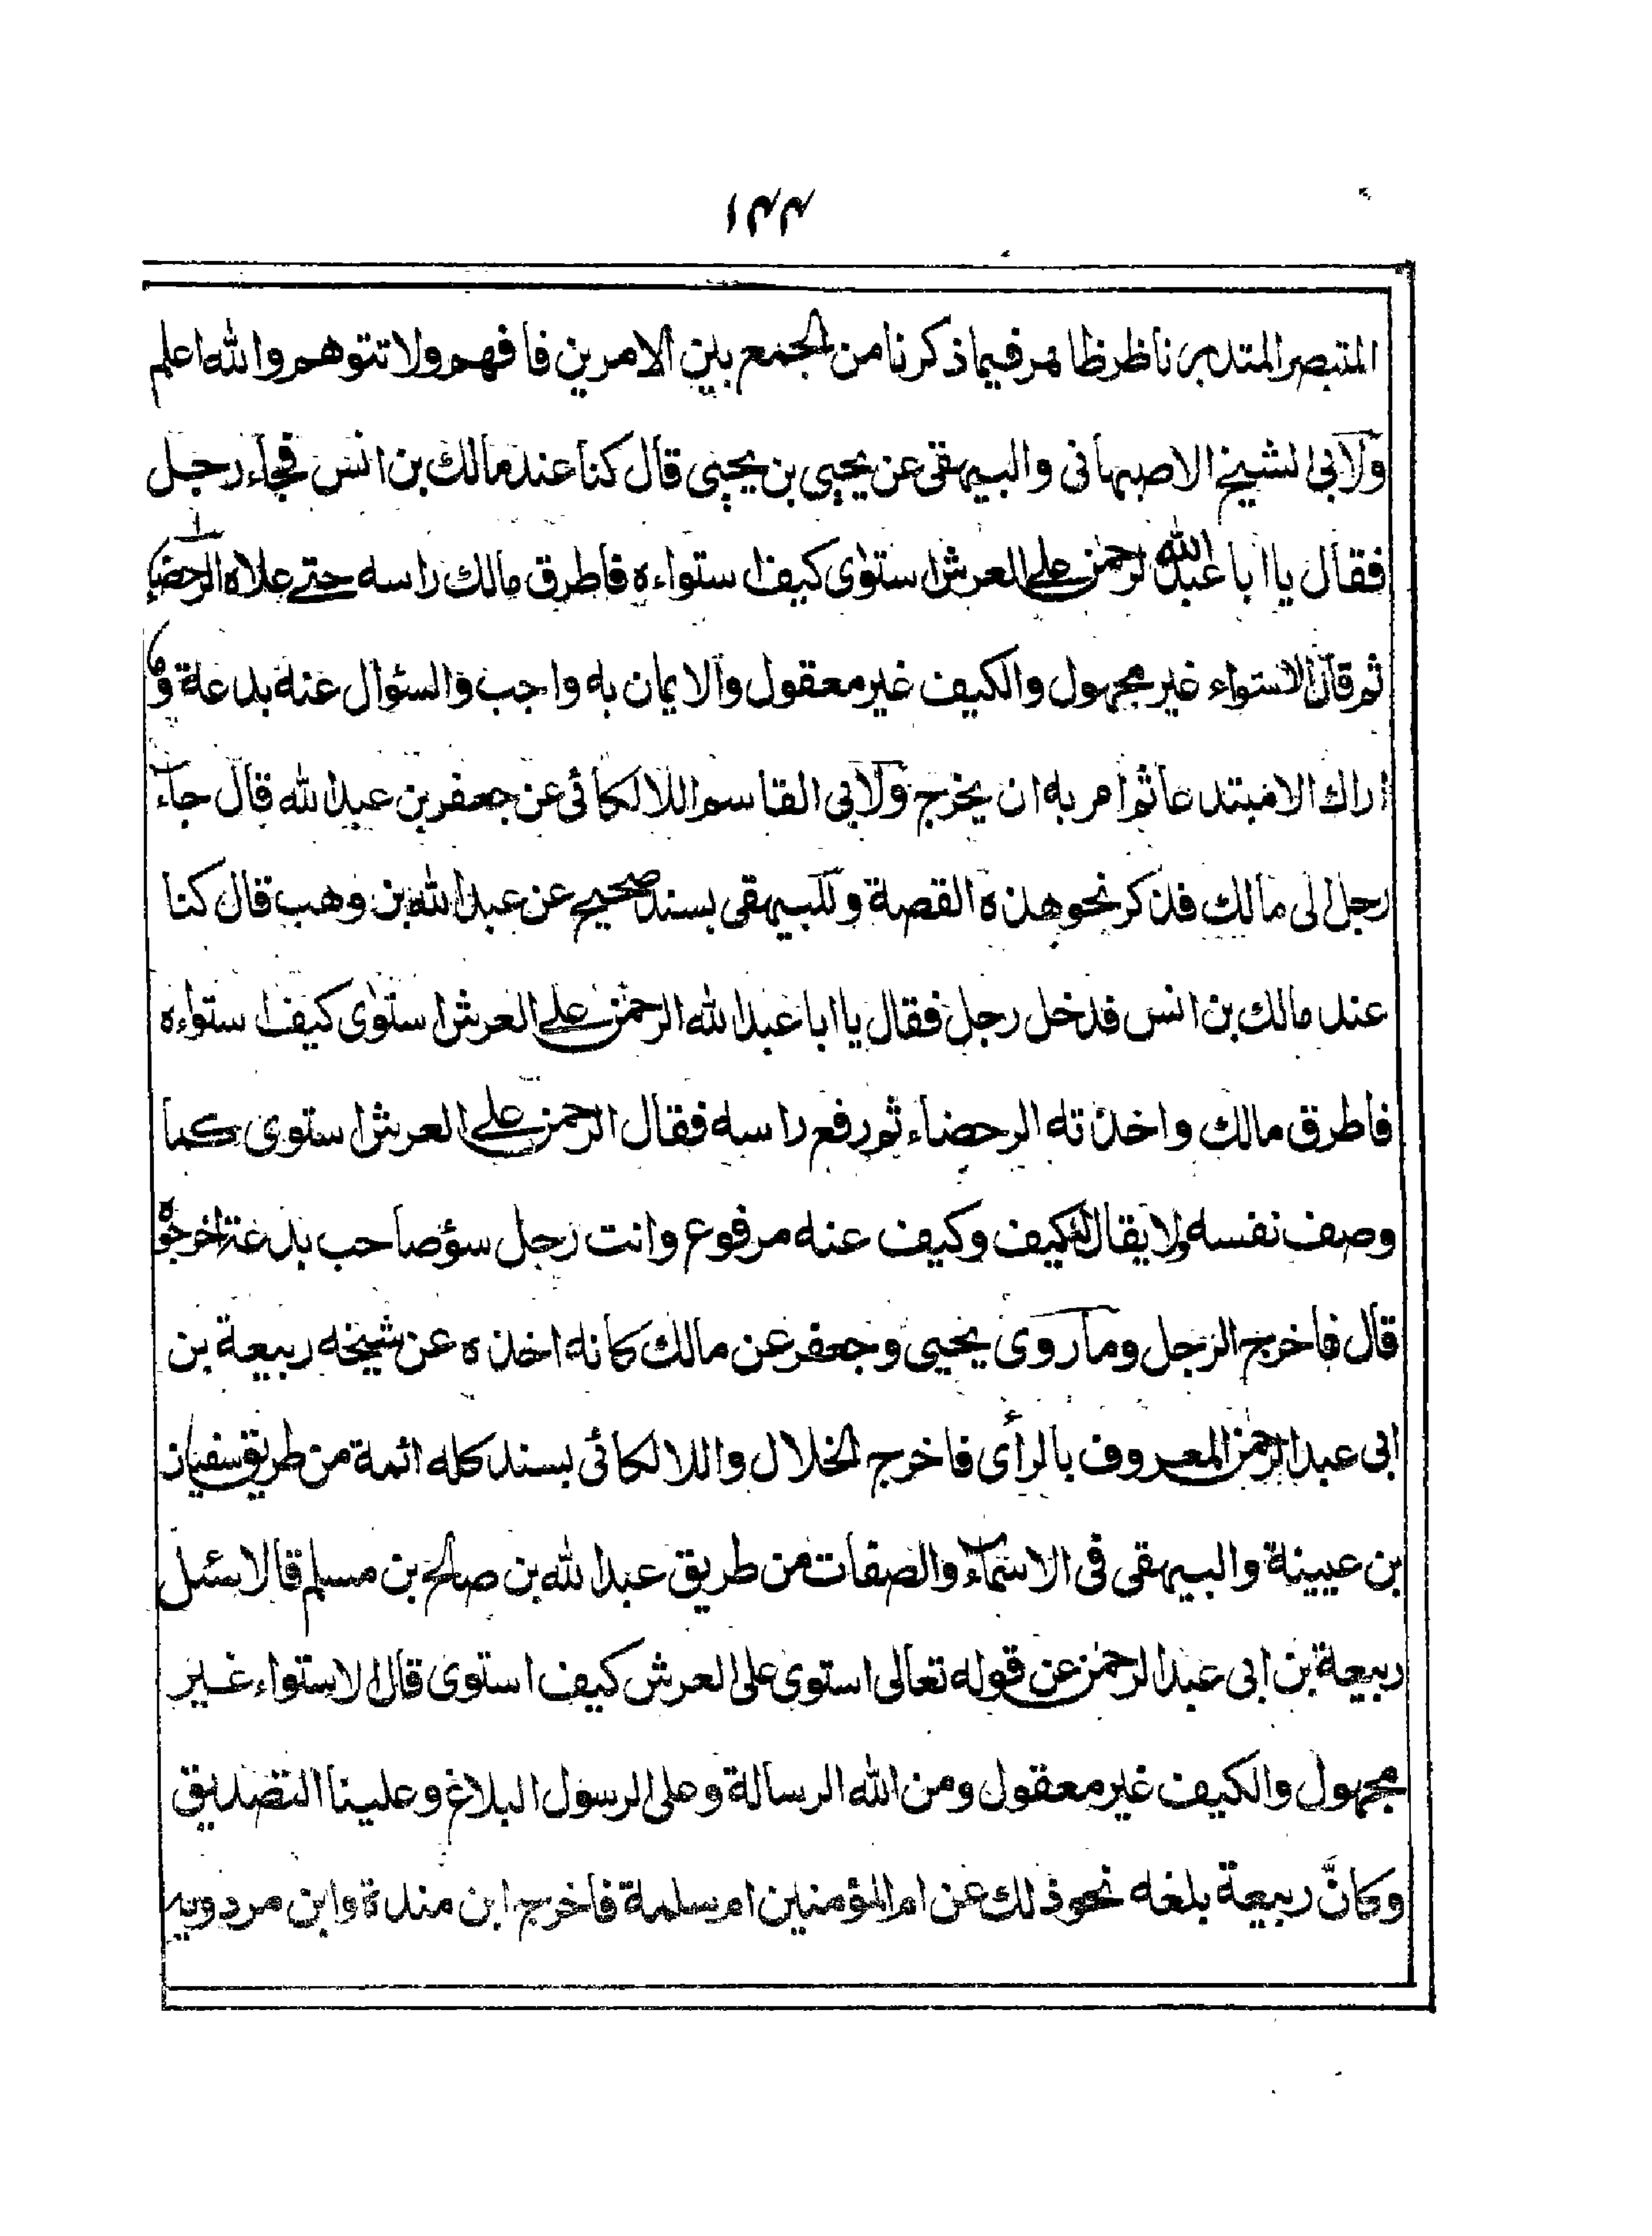 ١٤٤
المتبصر المتدبر ناظر ظاهر فيما ذكرنا من الجمع بين الامرين فافهم ولا تتوهم والله اعلم
ولابى الشيخ الاصبهانى والبيهقى عن يحيى بن يحيى قال كنا عند مالك بن انس فجاء رجل
فقال يا ابا عبد الله الرحمن على العرش استوى كيف استواءه فاطرق مالك راسه حتى علاه الرحضاء
ثم قال الاستواء غير مجهول والكيف غير معقول والايمان به واجب والسؤال عنه بدعة وما
اراك الا مبتدعا ثم امر به ان يخرج ولابى القاسم اللالكائى عن جعفر بن عبد الله قال جاء
رجل الى مالك فذكر نحو هذه القصة وللبيهقى بسند صحيح عن عبد الله بن وهب قال كنا
عند مالك بن انس فدخل رجل فقال يا ابا عبد الله الرحمن على العرش استوى كيف استواءه
فاطرق مالك واخذته الرحضاء ثم رفع راسه فقال الرحمن على العرش استوى كما
وصف نفسه ولا يقال له كيف وكيف عنه مرفوع وانت رجل سؤ صاحب بدعة اخرجوه
قال فاخرج الرجل وما روى يحيى وجعفر عن مالك كانه اخذه عن شيخه ربيعة بن
ابى عبد الرحمن المعروف بالرأى فاخرج الخلال واللالكائى بسند كله ائمة من طريق سفيان
بن عيينة والبيهقى فى الاسماء والصفات من طريق عبد الله بن صالح بن مسلم قالا سئل
ربيعة بن ابى عبد الرحمن عن قوله تعالى استوى على العرش كيف استوى قال الاستواء غير
مجهول والكيف غير معقول ومن الله الرسالة وعلى الرسول البلاغ وعلينا التصديق
وكانّ ربيعة بلغه نحو ذلك عن ام المؤمنين ام سلمة فاخرج ابن مندة وابن مردويه